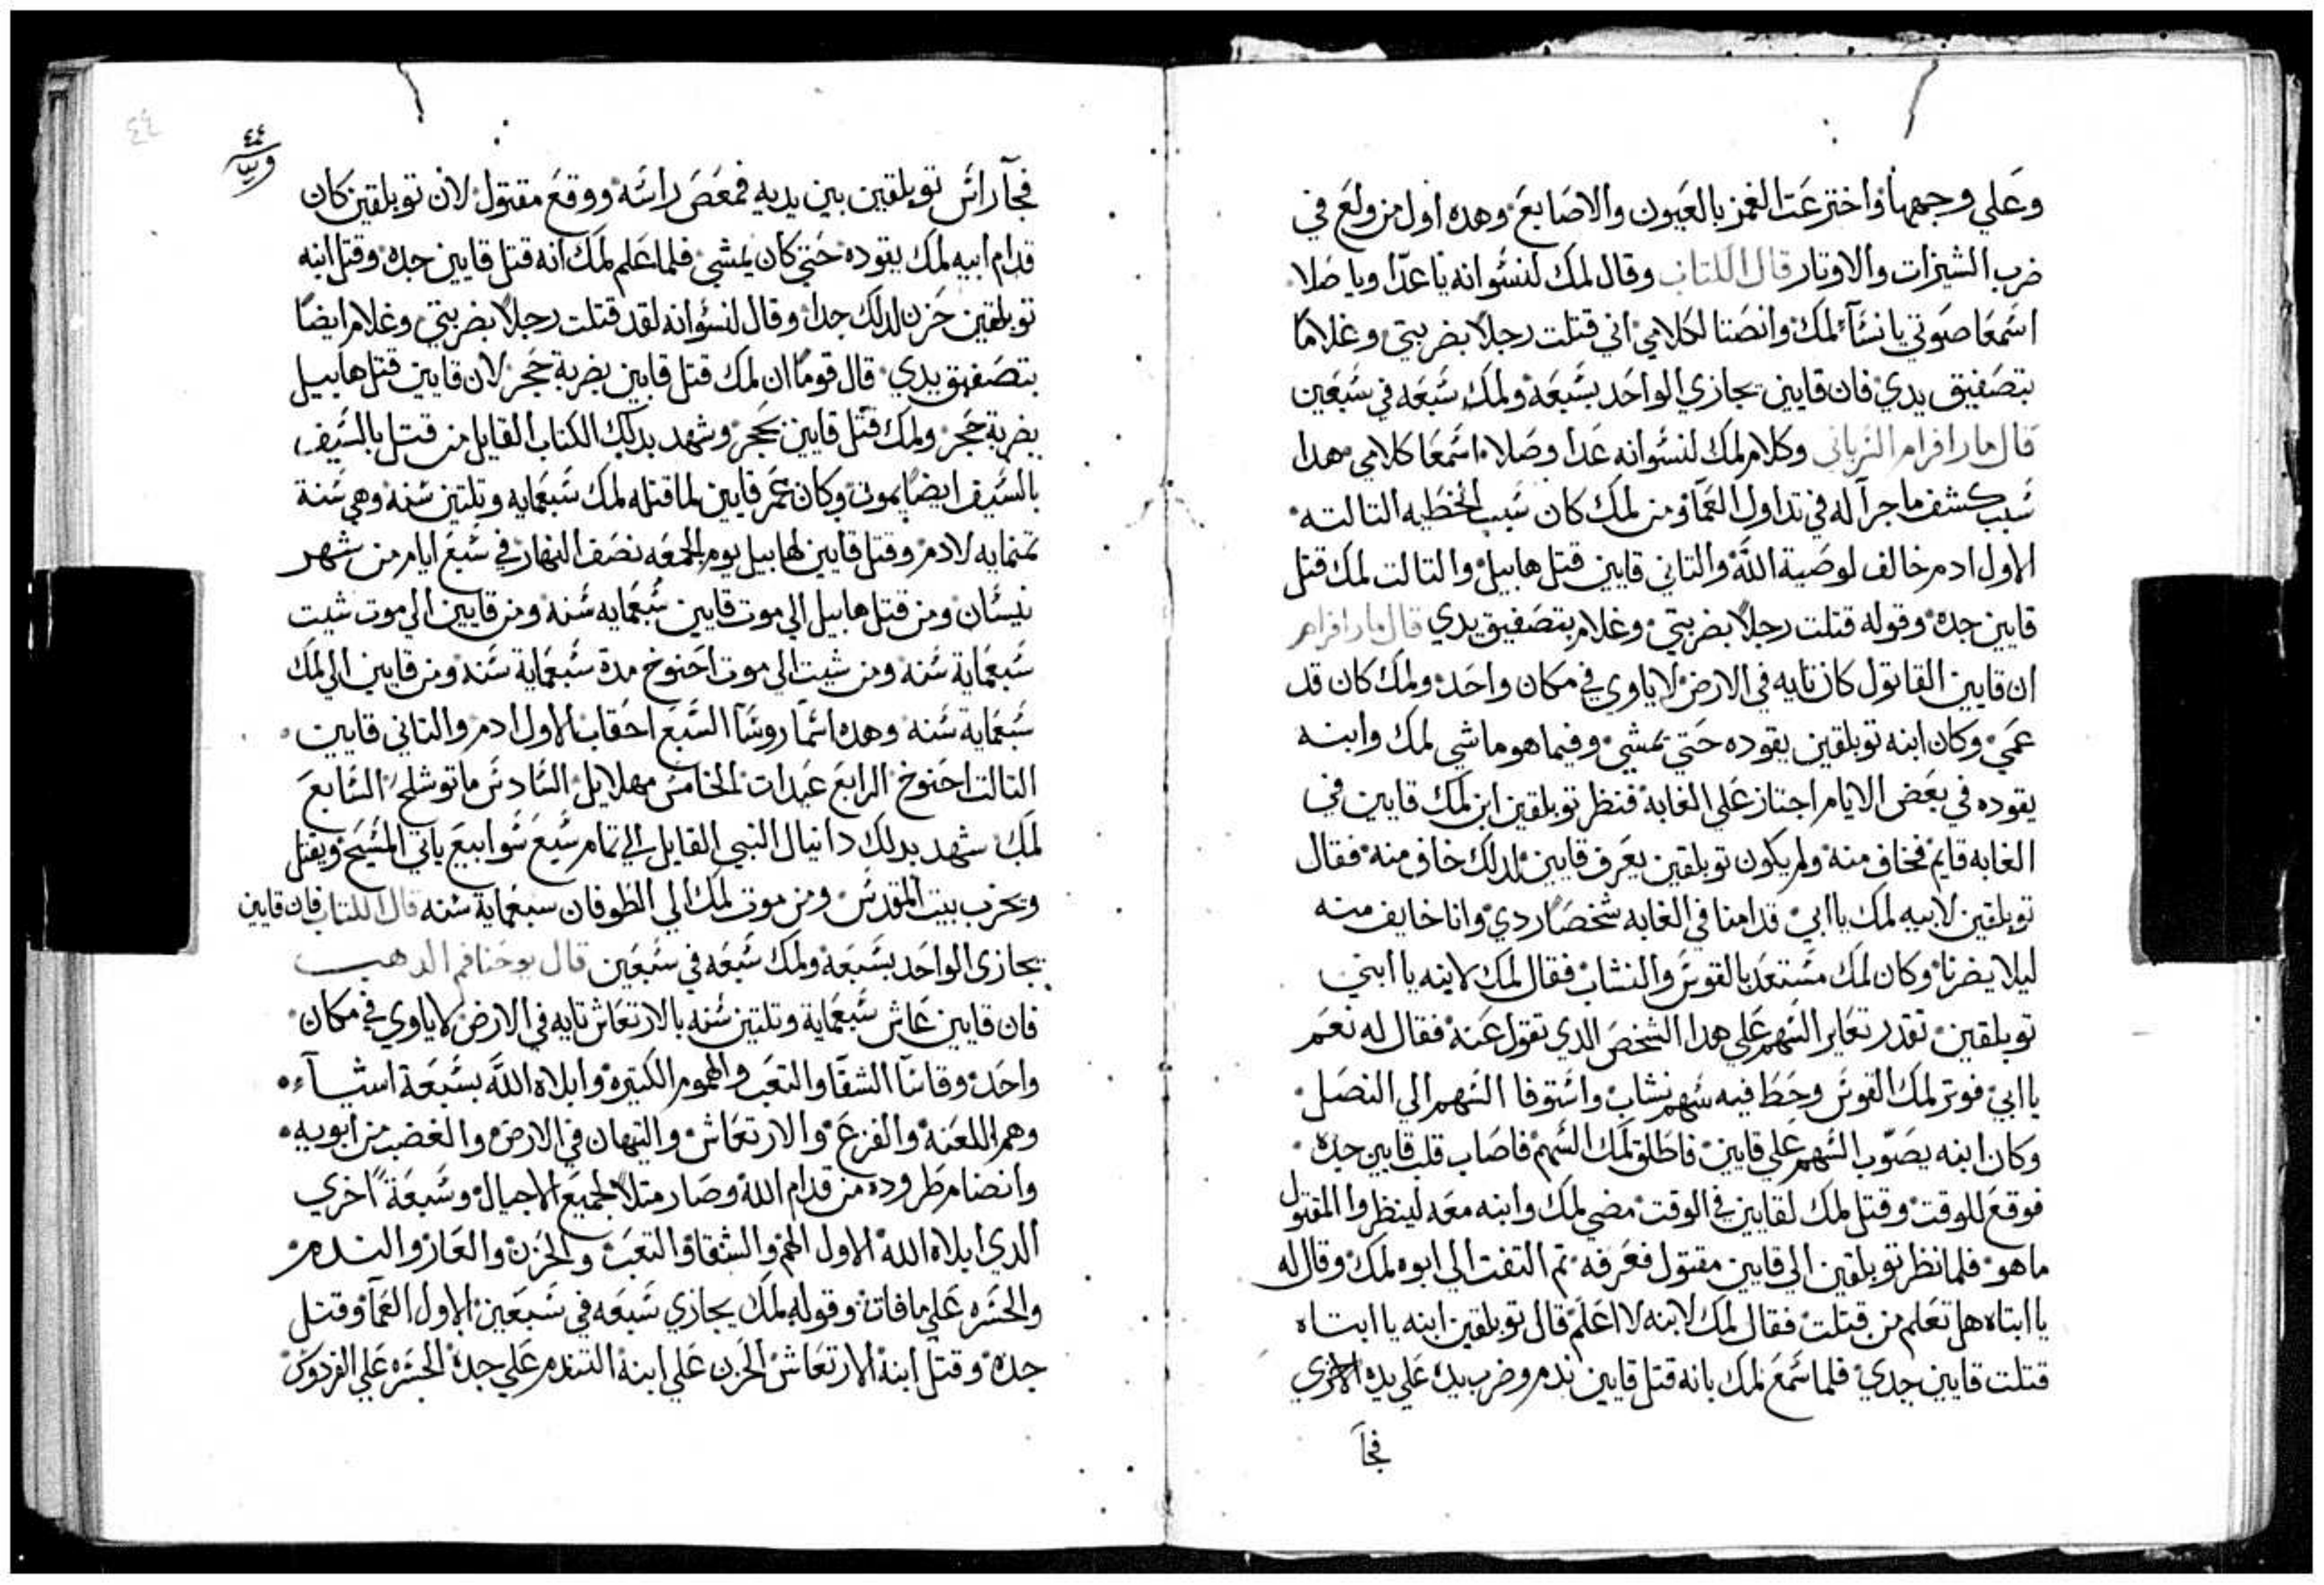 وعلي وجهها واخترعت الغمز بالعيون والاصابع وهده اول من ولع في
ضرب الشيزات والاوتار قال الكتاب وقال لمك لنسوانه يا عدا ويا صلا
اسمعا صوتي يا نسآء لمك وانصتا لكلامي اني قتلت رجلاً بضربتي وغلامًا
بتصفيق يدي فان قايين يجازي الواحد بسبعه ولمك سبعه في سبعين
قال مار افرام السرياني وكلام لمك لنسوانه عدا وصلا اسمعا كلامي هدا
سبب كشف ما جرآ له في تداول العمآ ومن لمك كان سبب الخطيه التالته
الاول ادم خالف لوصية الله والتاني قايين قتل هابيل والتالت لمك قتل
قايين جده وقوله قتلت رجلاً بضربتي وغلام بتصفيق يدي قال مار افرام
ان قايين القاتول كان تايه في الارض لا ياوي في مكان واحد ولمك كان قد
عمي وكان ابنه توبلقين يقوده حتي يمشي وفيما هو ماشي لمك وابنه
يقوده في بعض الايام اجتاز علي الغابة فنظر توبلقين ابن لمك قايين في
الغابه قايم فخاف منه ولم يكون توبلقين يعرف قايين لدلك خاف منه فقال
توبلقين لابيه لمك يا ابي قدامنا في الغابه شخصًا ردي وانا خايف منه
ليلا يضرنا وكان لمك مستعد بالقوس والنشاب فقال لمك لابنه يا ابني
توبلقين تقدر تعاير السهم علي هدا الشخص الدي تقول عنه فقال له نعم
يا ابي فوتر لمك القوس وحط فيه سهم نشاب واستوفا السهم الي النصل
وكان ابنه يصوّب السهم علي قايين فاطلق لمك السهم فاصاب قلب قايين جده
فوقع للوقت وقتل لمك لقايين في الوقت مضي لمك وابنه معه لينظروا المقتول
ما هو فلما نظر توبلقين الي قايين مقتول فعرفه تم التفت الي ابوه لمك وقال له
يا ابتاه هل تعلم من قتلت فقال لمك لابنه لا اعلم قال توبلقين ابنه يا ابتاه
قتلت قايين جدي فلما سمع لمك بانه قتل قايين ندم وضرب يده علي يده الاخري
فجآ
٤٤
٤٤
فجآ راس توبلقين بين يديه فمعص راسه ووقع مقتول لان توبلقين كان
قدام ابيه لمك يقوده حتي كان يمشي فلما علم لمك انه قتل قايين جده وقتل ابنه
توبلقين حزن لدلك جدا وقال لنسوانه لقد قتلت رجلاً بضربتي وغلام ايضًا
بتصفيق يدي قال قومًا ان لمك قتل قايين بضربة حجر لان قايين قتل هابيل
بضربة حجر ولمك قتل قايين بحجر وشهد بدلك الكتاب القايل من قتل بالسيف
بالسيف ايضًا يموت وكان عمر قايين لما قتله لمك سبعمايه وتلتين سنه وهي سنة
تمنمايه لادم وقتل قايين لهابيل يوم الجمعه نصف النهار في سبع ايام من شهر
نيسان ومن قتل هابيل الي موت قايين سبعمايه سنه ومن قايين الي موت شيت
سبعماية سنه ومن شيت الي موت احنوخ مدة سبعماية سنه ومن قايين الي لمك
سبعماية سنه وهده اسمآ روسآ السبع احقاب الاول ادم والتاني قايين
التالت احنوخ الرابع عبدات الخامس مهلاييل السادس ماتوشلح السابع
لمك شهد بدلك دانيال النبي القايل الي تمام سبع سوابيع ياتي المسيح ويقتل
ويخرب بيت المقدس ومن موت لمك الي الطوفان سبعماية سنه قال الكتاب فان قايين
يجازي الواحد بسبعه ولمك سبعه في سبعين قال يوحنا فم الدهب
فان قايين عاش سبعماية وتلتين سنه بالارتعاش تايه في الارض لا ياوي في مكان
واحد وقاسا الشقا والتعب والهموم الكتيره وابلاه الله بسبعة اشيآء
وهم اللعنه والفزع والارتعاش والتيهان في الارض والغضب من ابويه
وانضا مطروده من قدام الله وصار متلاً لجميع الاجيال وسبعةً اخري
الدي ابلاه الله الاول الهم والشقا والتعب والحزن والعار والندم
والحسره علي ما فات وقوله لمك يجازي سبعه في سبعين الاول العمآ وقتل
جده وقتل ابنه الارتعاش الحزن علي ابنه التندم علي جده الحسره علي الفردوس